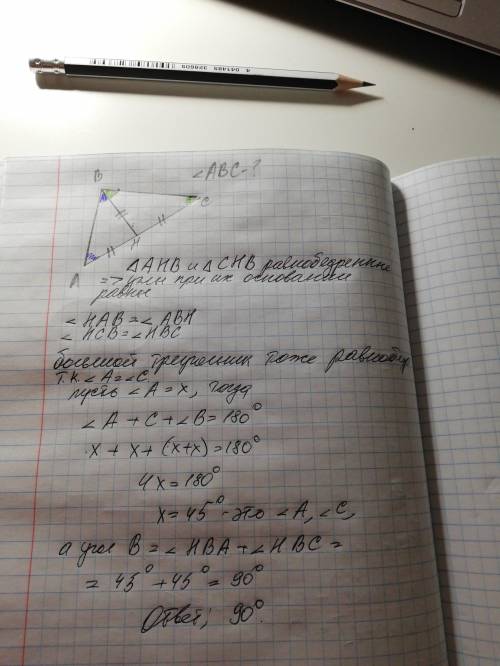 4 041485 328605
∠ABC-?
B
C
H
A
△AHB и △CHB равнобедренные
=> углы при их основании
равны
∠HAB=∠ABH
∠HCB=∠HBC
большой треугольник тоже равнобед
т.к. ∠A=∠C.
пусть ∠A=x, тогда
∠A+C+∠B=180°
x+x+(x+x)=180°
4x=180°
x=45°-это ∠A,∠C,
а угол B=∠HBA+∠HBC=
=45°+45°=90°
Ответ; 90°.